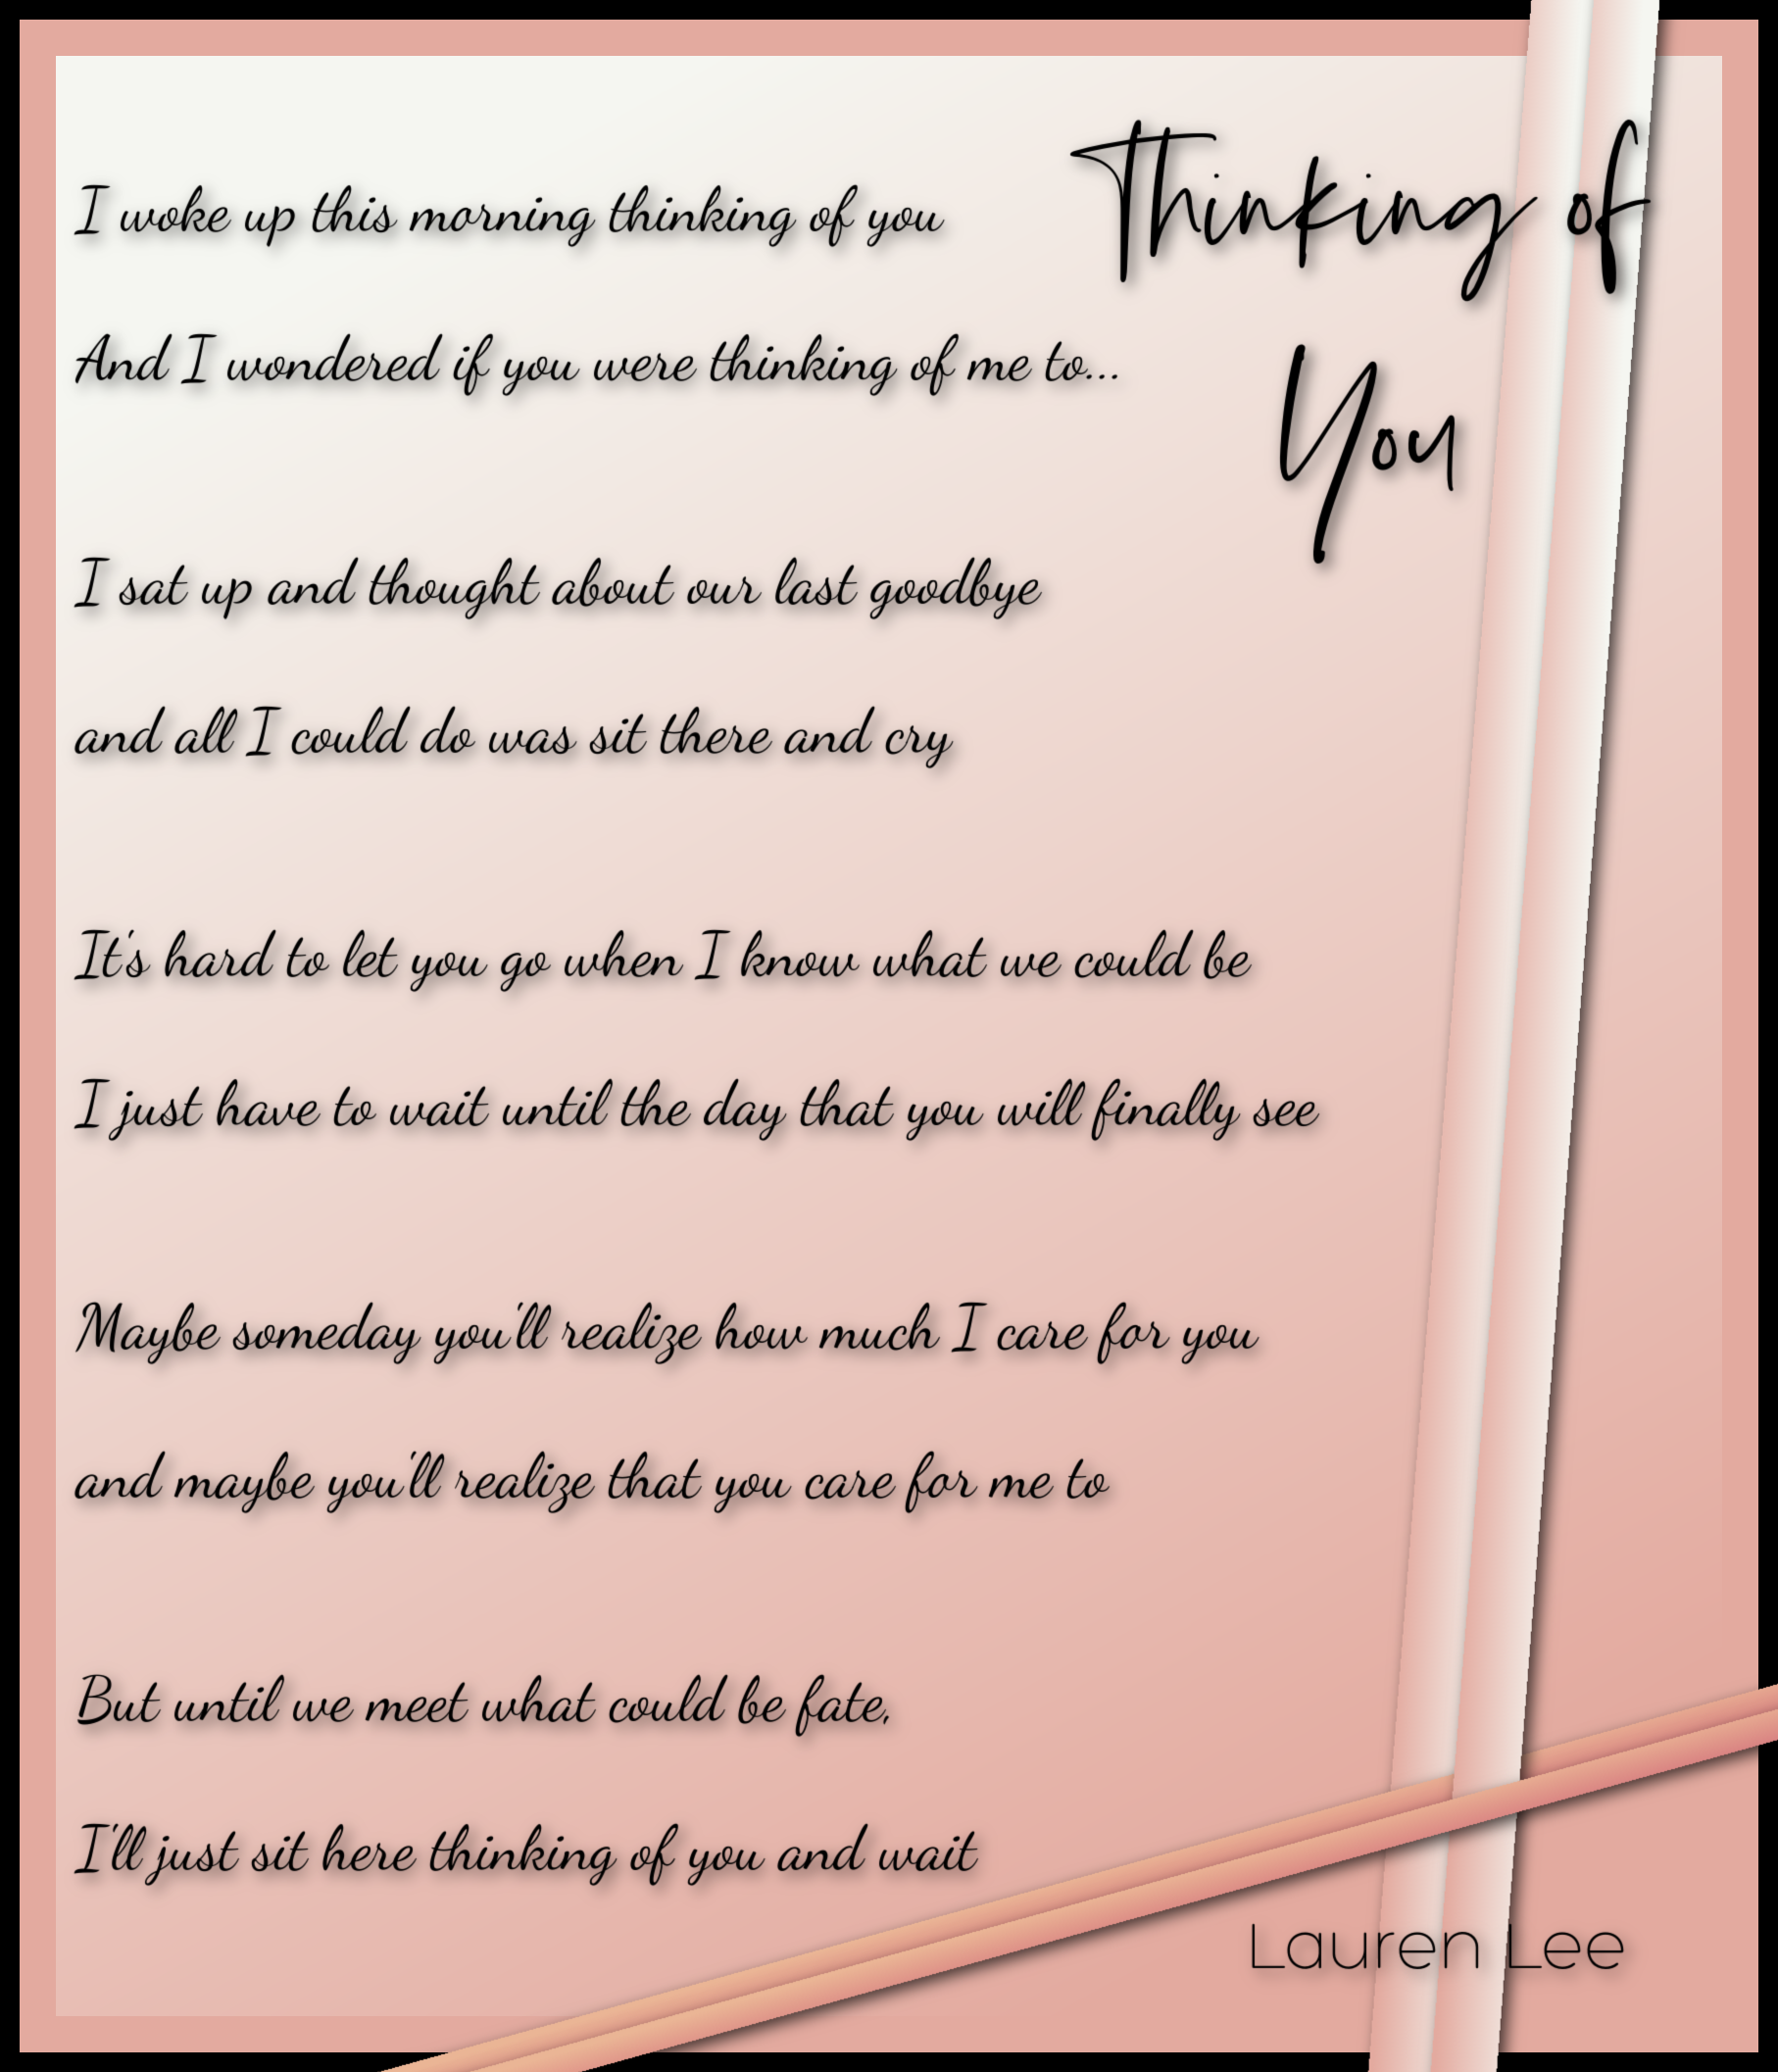 Thinking of
You
I woke up this morning thinking of you
And I wondered if you were thinking of me to...
I sat up and thought about our last goodbye
and all I could do was sit there and cry
It's hard to let you go when I know what we could be
I just have to wait until the day that you will finally see
Maybe someday you'll realize how much I care for you
and maybe you'll realize that you care for me to
But until we meet what could be fate,
I'll just sit here thinking of you and wait
Lauren Lee